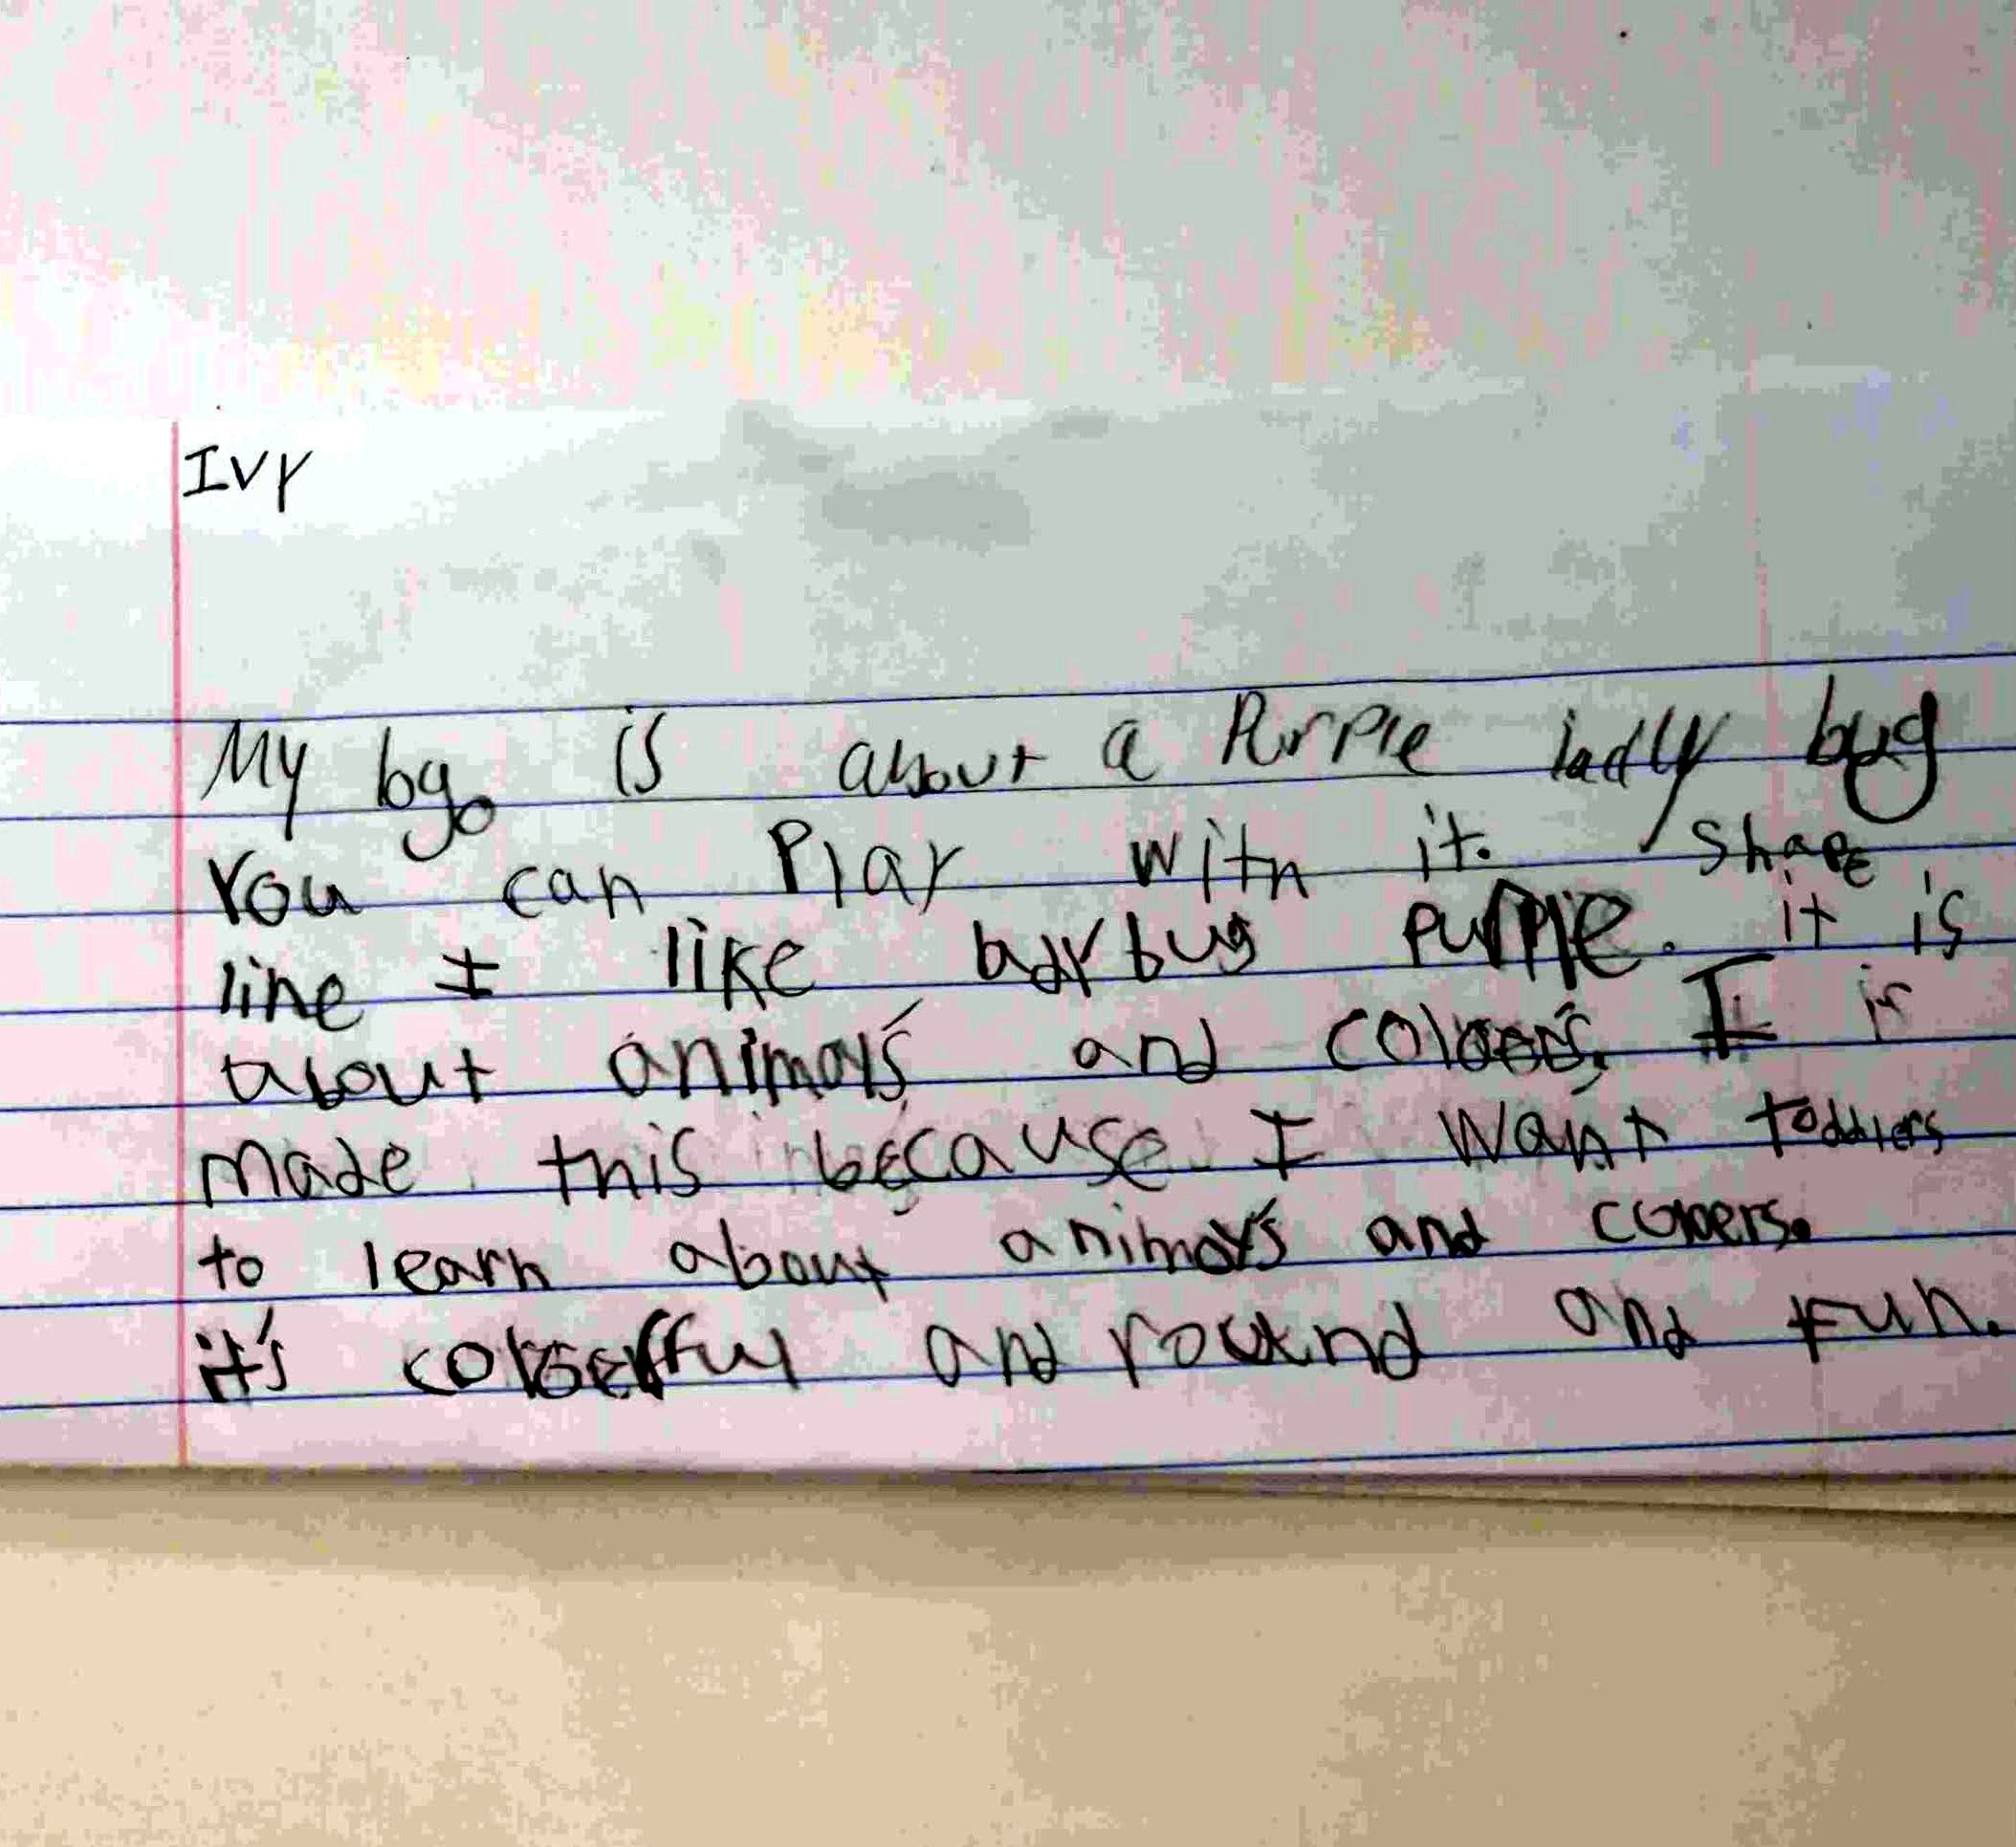 Ivy
My bg. is about a Purple ladly bug
You can Play with it. shape
line I like bdybug purple. it is
about animals and I
made this because I want toddlers
to learn about animals and
it's and round and fun.